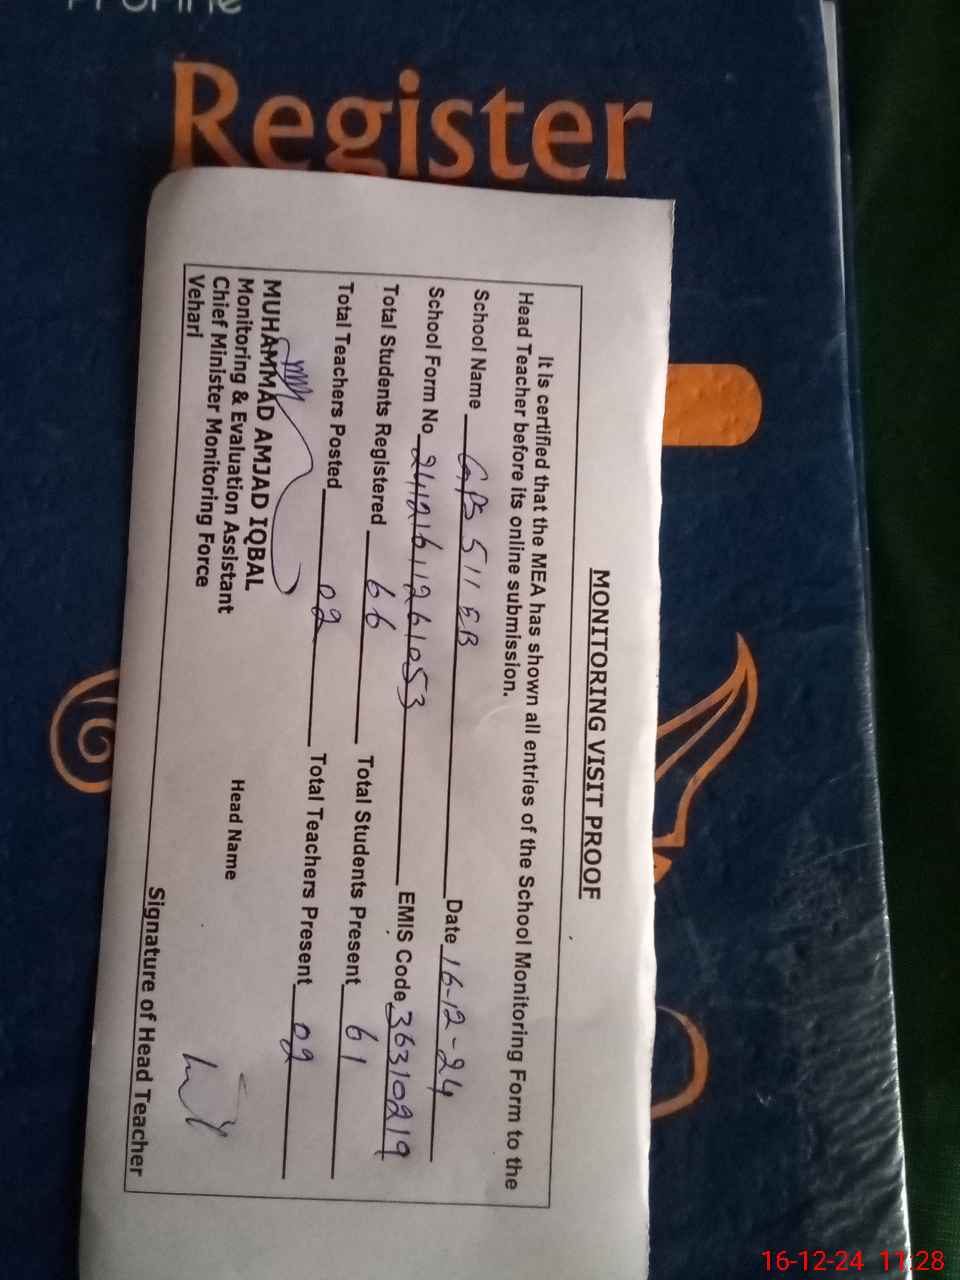 Register
MONITORING VISIT PROOF
It is certified that the MEA has shown all entries of the School Monitoring Form to the
Head Teacher before its online submission.
School Name GPS 511 EB Date 16-12-24
School Form No 24121611261053 EMIS Code 36310219
Total Students Registered 66 Total Students Present 61
Total Teachers Posted 02 Total Teachers Present 02
MUHAMMAD AMJAD IQBAL
Monitoring & Evaluation Assistant Head Name
Chief Minister Monitoring Force
Vehari
Signature of Head Teacher
16-12-24 11:28